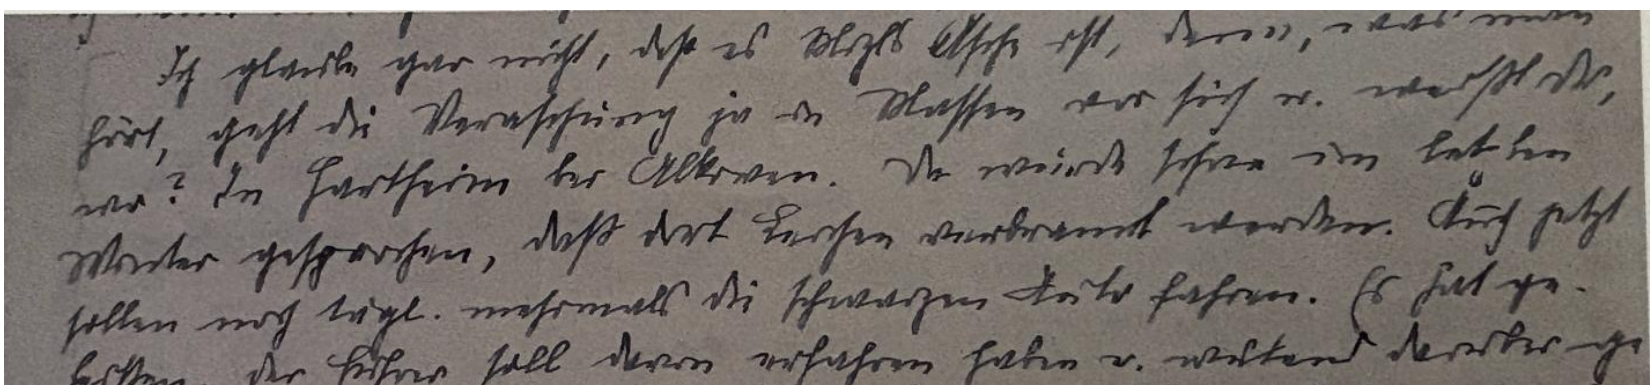 Ich glaube gar nicht, daß es Mizls Asche ist, denn, was man
hört, geht die Veraschung ja in Massen vor sich u. weißt du,
wo? In Hartheim bei Alkoven. Da wurde schon im letzten
Winter gesprochen, daß dort Leichen verbrannt werden. Auch jetzt
sollen noch tägl. mehrmals die schwarzen Auto fahren. Es hat ge-
heißen, der Führer soll davon erfahren haben u. wütend darüber ge